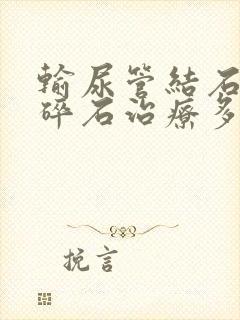 輸尿管結石
碎石治療多
挽言